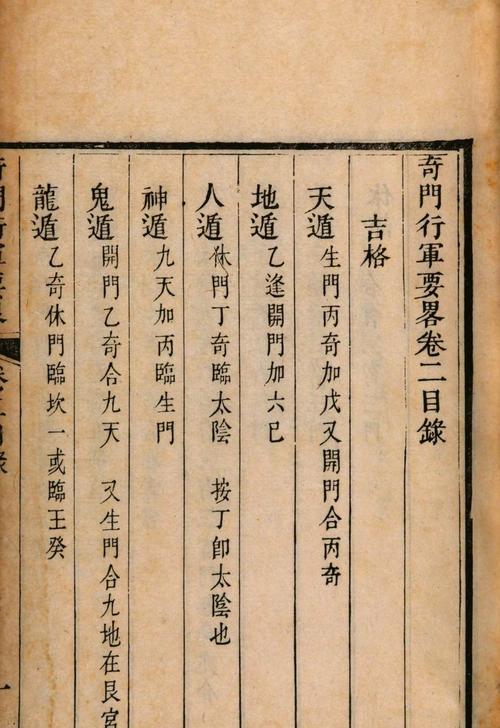 奇門行軍要畧卷二目錄
吉格
天遁 生門丙奇加戊又開門合丙奇
地遁 乙逢開門加六巳
人遁 休門丁奇臨太陰 按丁卽太陰也
神遁 九天加丙臨生門
鬼遁 開門乙奇合九天 又生門合九地在艮宮
龍遁 乙奇休門臨坎一或臨王癸